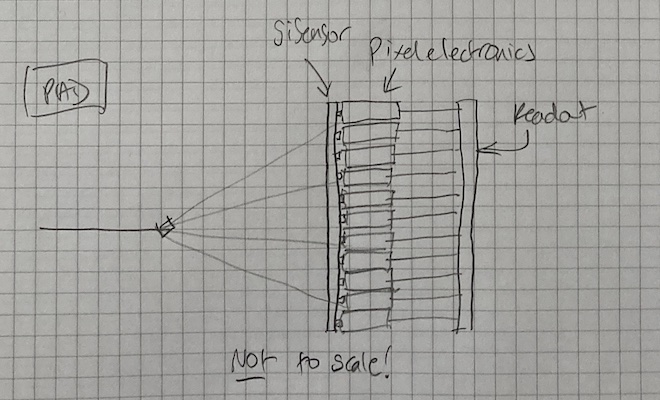 SiSensor
Pixel electronics
PAD
Readout
Not to scale!